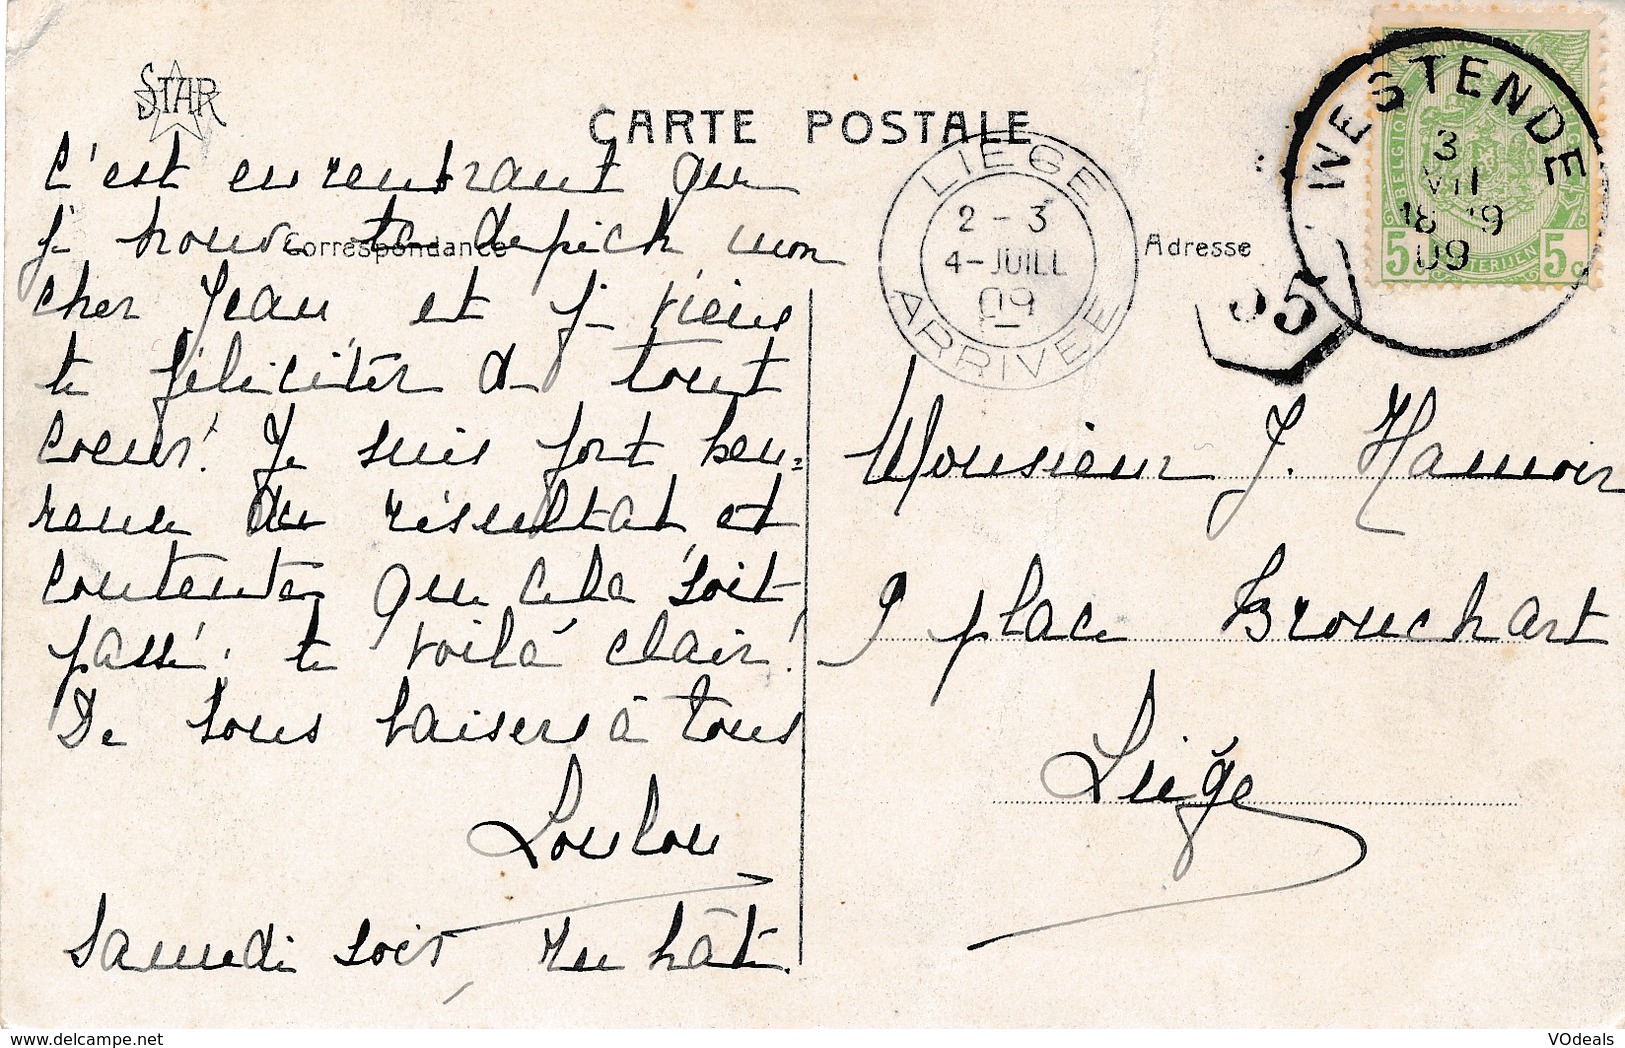 STAR
CARTE POSTALE
Correspondance
Adresse
C'est en rentrant que
je trouve ta dépêch mon
cher Jean et je viens
te féliciter de tout
coeur! Je suis fort heu-
reuse du résultat et
contente que cela soit
passé. te voilà clair!
De bons baisers à tous
Loulou
Samedi soir, en hâte.
LIEGE
2-3
4-JUILL
09
ARRIVEE
WESTENDE
3
VII
18-19
09
5c
5c
Monsieur J. Hamoir
9 place Bronckart
Liège
VOdeals
www.delcampe.net